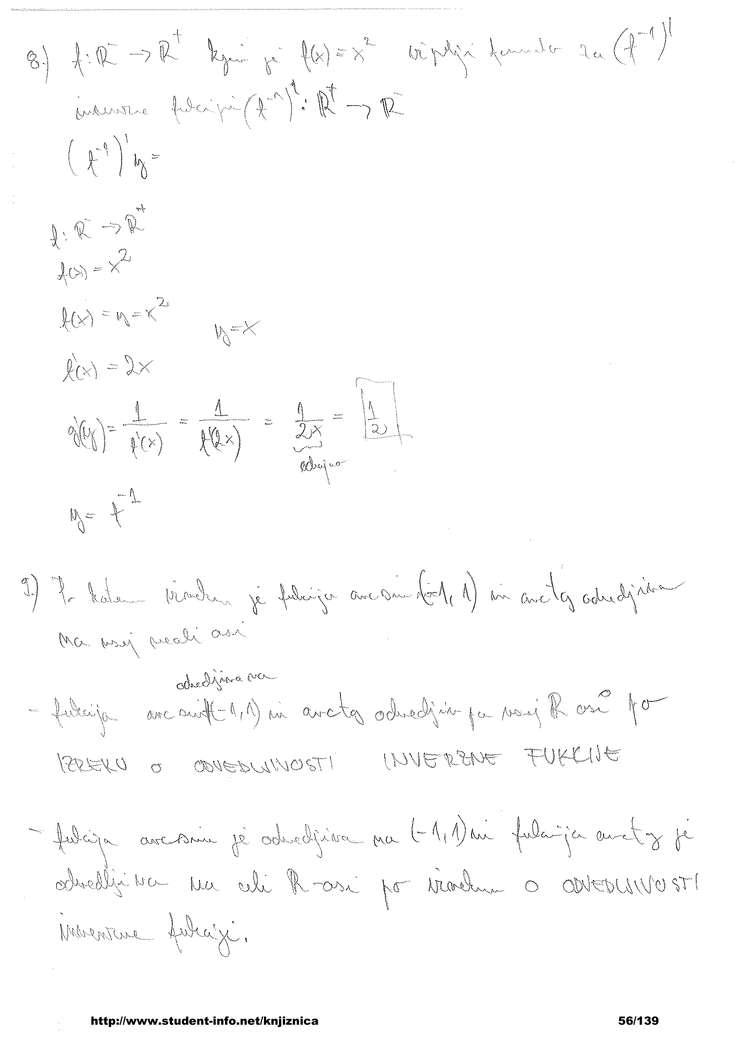 8.) f: R⁻ → R⁺ kjer je f(x) = x² formulo za (f⁻¹)'
inverzne fukcije (f⁻¹)': R⁺ → R⁻
(f⁻¹)'y =
f: R⁻ → R⁺
f(x) = x²
f(x) = y = x² y = x
f'(x) = 2x
g'(y) = 1/f'(x) = 1/f'(2x) = 1/2x = 1/2
y = f⁻¹
9.) Po katerem izreku je fukcija arcsin (-1, 1) in arctg odvedljiva
na vsej realni osi
odvedljiva na
- fukcija arcsin (-1, 1) in arctg odvedljiv pa vsej R osi po
IZREKU O ODVEDLJIVOSTI INVERZNE FUKCIJE
- fukcija arcsin je odvedljiva na (-1, 1) in fukcija arctg je
odvedljiva na celi R-osi po izreku O ODVEDLJIVOSTI
inverzne fukciji.
http://www.student-info.net/knjiznica 56/139